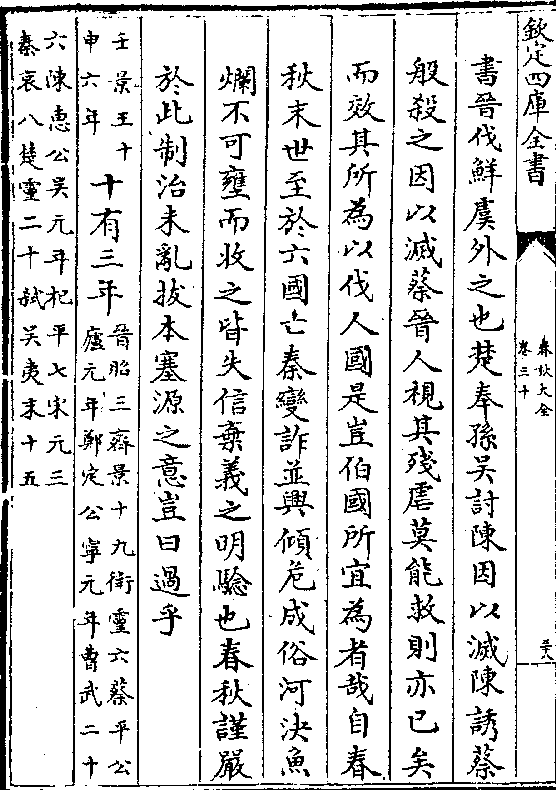 欽定四庫全書
春秋大全
卷三十
書晉伐鮮虞外之也楚奉孫吳討陳因以滅陳誘蔡
般殺之因以滅蔡晉人視其殘虐莫能救則亦已矣
而效其所為以伐人國是豈伯國所宜為者哉自春
秋末世至於六國亡秦變詐並興傾危成俗河決魚
爛不可壅而收之皆失信棄義之明驗也春秋謹嚴
於此制治未亂拔本塞源之意豈曰過乎
壬景王十
申六年
十有三年
晉昭三齊景十九衛靈六蔡平公
廬元年鄭定公寧元年曹武二十
六陳惠公吳元年杞平七宋元三
秦哀八楚靈二十弒吳夷末十五